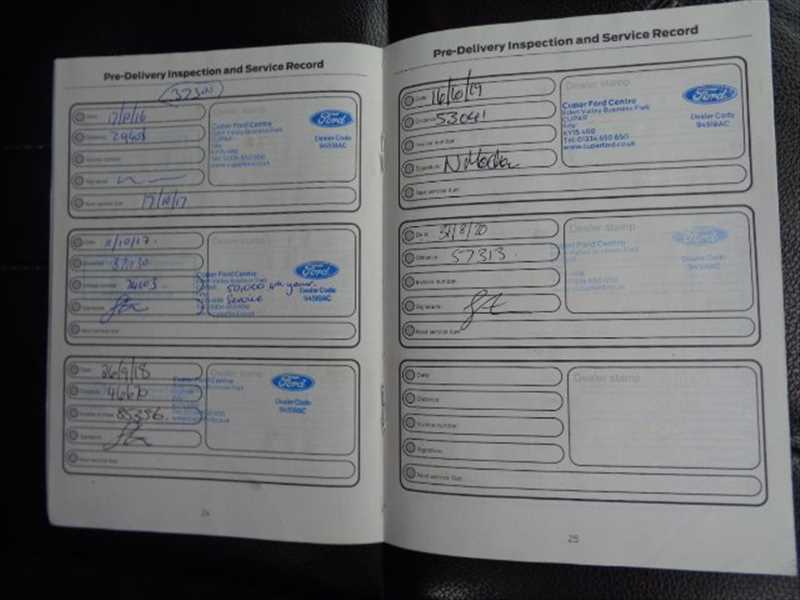 Pre-Delivery Inspection and Service Record
37300
Date 17/10/16
Distance 29403
Invoice number
Signature
Next service due 17/10/17
Dealer stamp
Cupar Ford Centre
Eden Valley Business Park
CUPAR
Fife
KY15 4RB
Tel: 01334 650 650
www.cuparfmd.co.uk
Ford
Dealer Code
94518AC
Date 11/10/17.
Distance
Invoice number
Signature
Next service due
Dealer stamp
Cupar Ford Centre
Eden Valley Business Park
50,000 4th year
Service
Ford
Dealer Code
94518AC
Date 26/9/18
Distance
Invoice number 85356
Signature
Next service due
Dealer stamp
Cupar Ford Centre
Ford
Dealer Code
94518AC
24
Pre-Delivery Inspection and Service Record
Date 16/6/19
Distance 53041
Invoice number
Signature
Next service due
Dealer stamp
Cupar Ford Centre
Eden Valley Business Park
CUPAR
Fife
KY15 4RB
Tel: 01334 650 650
www.cuparfmd.co.uk
Ford
Dealer Code
94518AC
Date 31/8/20
Distance 57313
Invoice number
Signature
Next service due
Dealer stamp
Cupar Ford Centre
Eden Valley Business Park
Ford
Dealer Code
94518AC
Date
Distance
Invoice number
Signature
Next service due
Dealer stamp
25